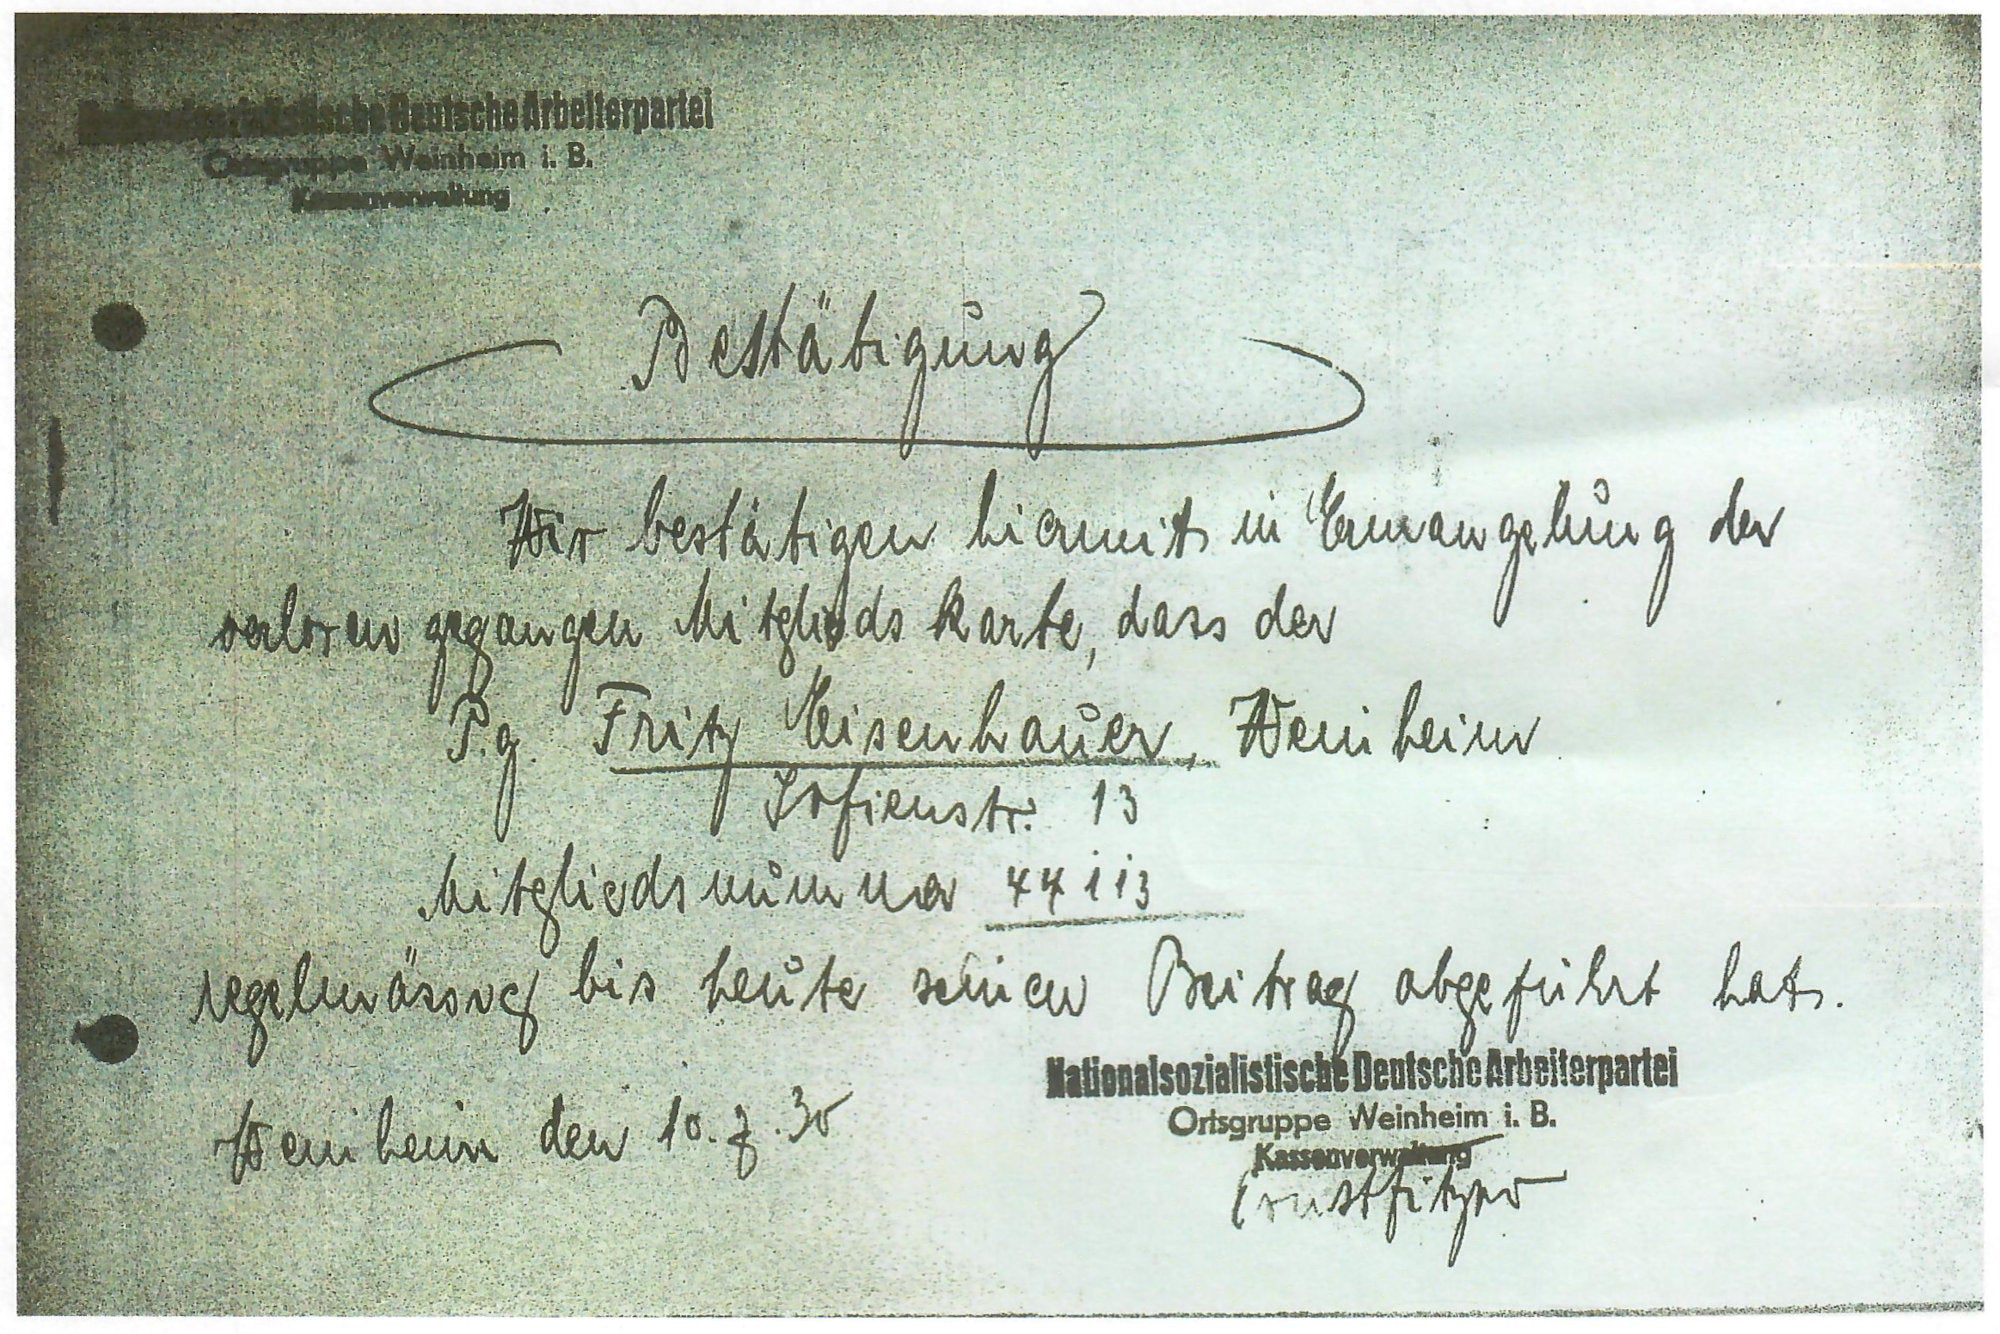 Nationalsozialistische Deutsche Arbeiterpartei
Ortsgruppe Weinheim i. B.
Kassenverwaltung
Bestätigung
Wir bestätigen hiermit in Ermangelung der
verloren gegangen Mitglieds karte, dass der
P.g. Fritz Eisenhauer, Weinheim
Sofienstr. 13
Mitgliedsnummer 44113
regelmässig bis heute seinen Beitrag abgeführt hat.
Nationalsozialistische Deutsche Arbeiterpartei
Ortsgruppe Weinheim i. B.
Kassenverwaltung
Weinheim den 10. 7. 30